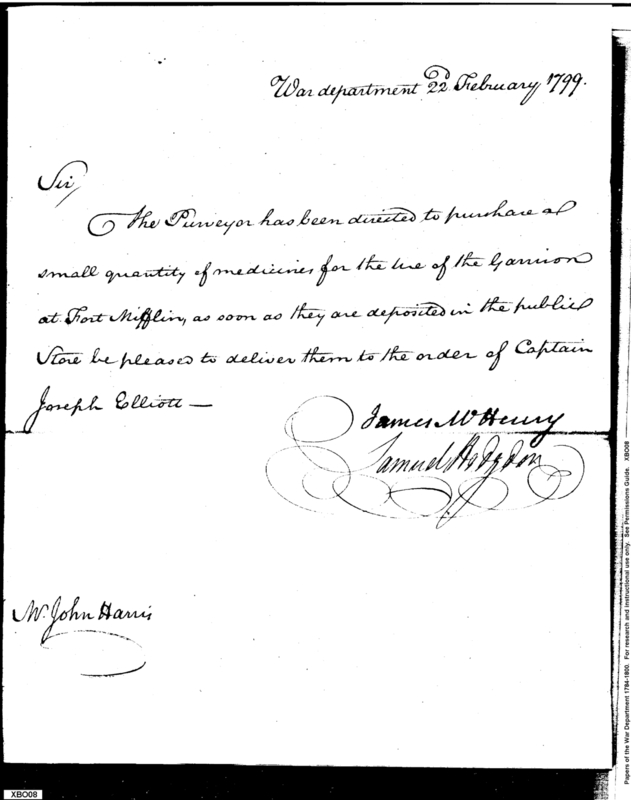 War department 22d February, 1799.
Sir,
The Purveyor has been directed to purchase a
small quantity of medicines for the use of the Garrison
at Fort Mifflin, as soon as they are deposited in the public
Store be pleased to deliver them to the order of Captain
Joseph Elliott —
James McHenry
Samuel Hodgdon
Mr. John Harris
XBO08
Papers of the War Department 1784-1800. For research and instructional use only. See Permissions Guide. XBO08